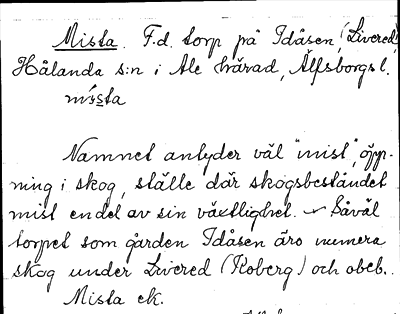 Mista. F.d. torp på Idåsen, (Livered)
Hålanda s:n i Ale härad, Älfsborgs l.
mı́sta
Namnet antyder väl "mist", öpp-
ning i skog, ställe där skogsbeståndet
mist en del av sin växtlighet. – Såväl
torpet som gården Idåsen äro numera
skog under Livered (Roberg) och obeb.
Mista ek.